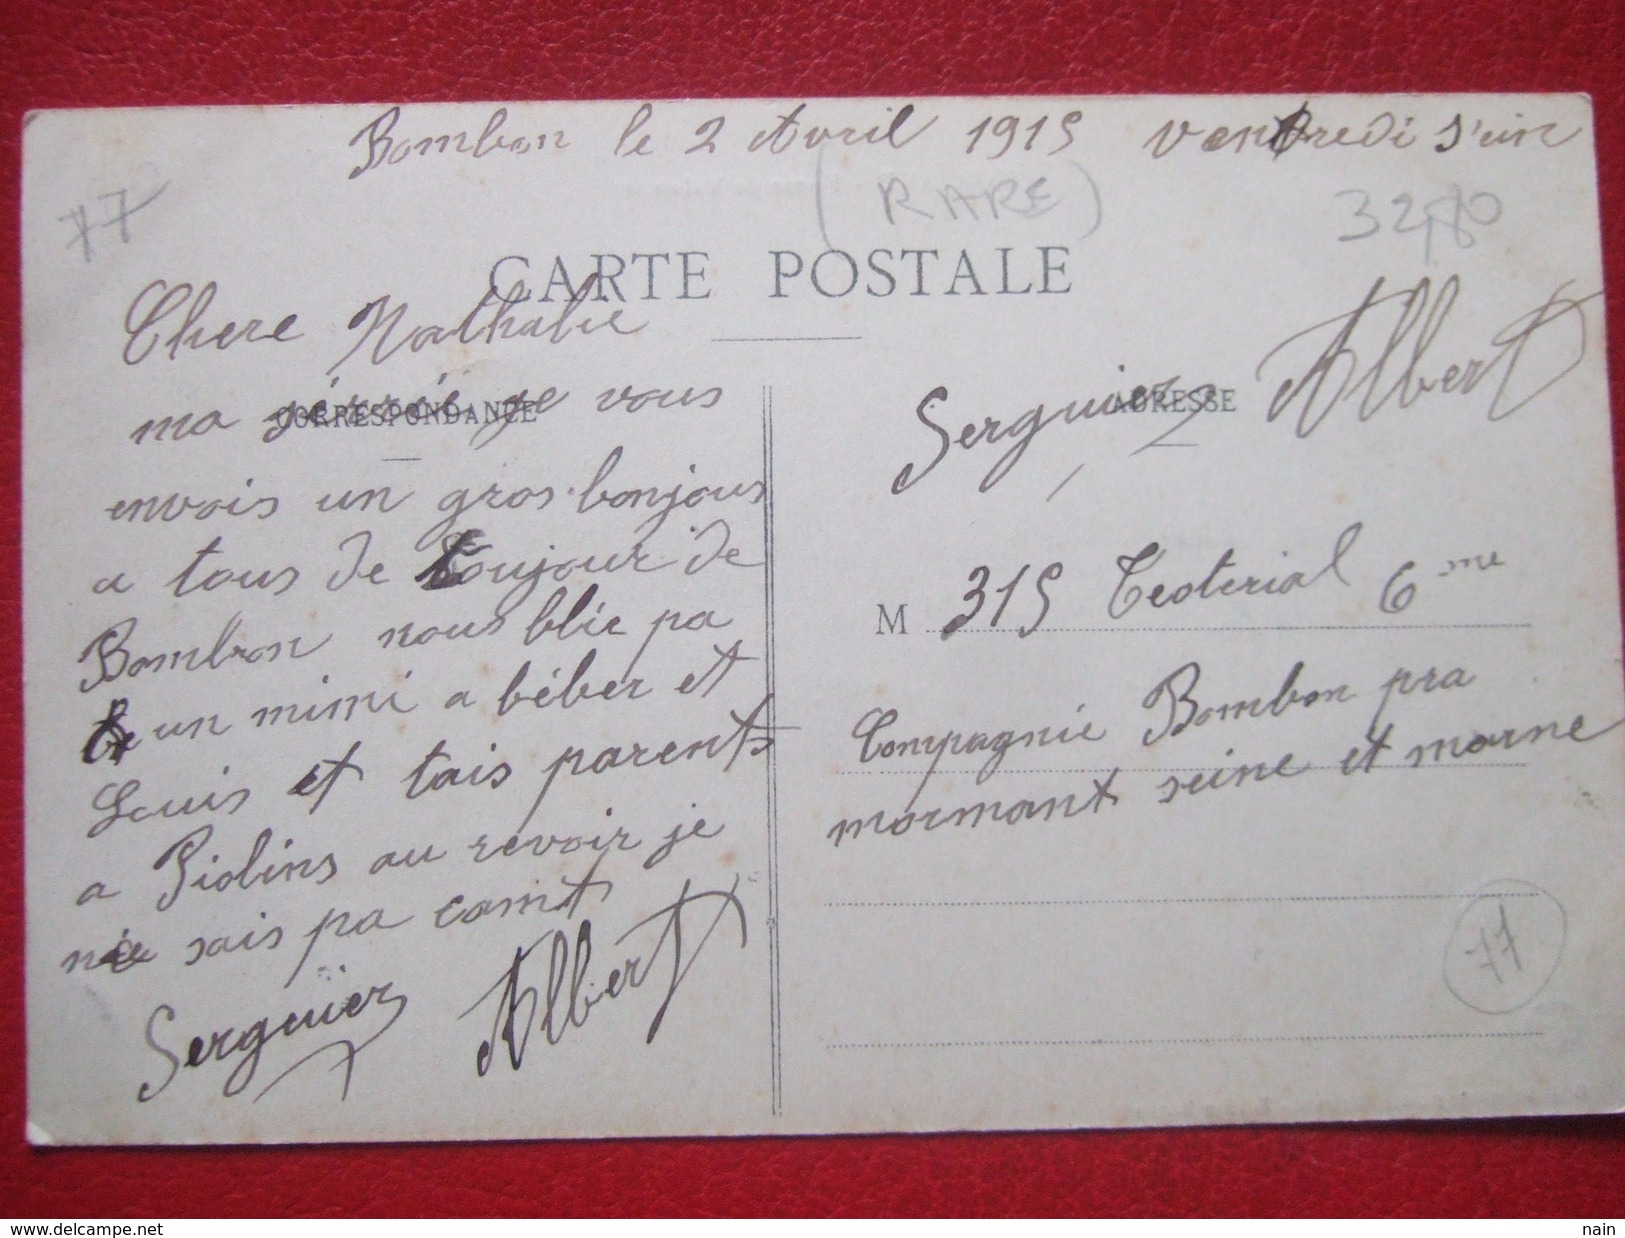 Bombon le 2 Avril 1915 Vendredi s'ein
77
(RARE)
32,80
CARTE POSTALE
CORRESPONDANCE
Chere Nathalie
ma ge vous
envois un gros bonjous
a tous de toujour de
Bombon nous blie pa
un mimi a béber et
Louis et tais parents
a Piolins au revoir je
ne sais pa comt
Serguier Albert
ADRESSE
Serguier Albert
M 315 Teoterial 6eme
Compagnie Bombon pra
mormant seine et marne
77
www.delcampe.net
nain